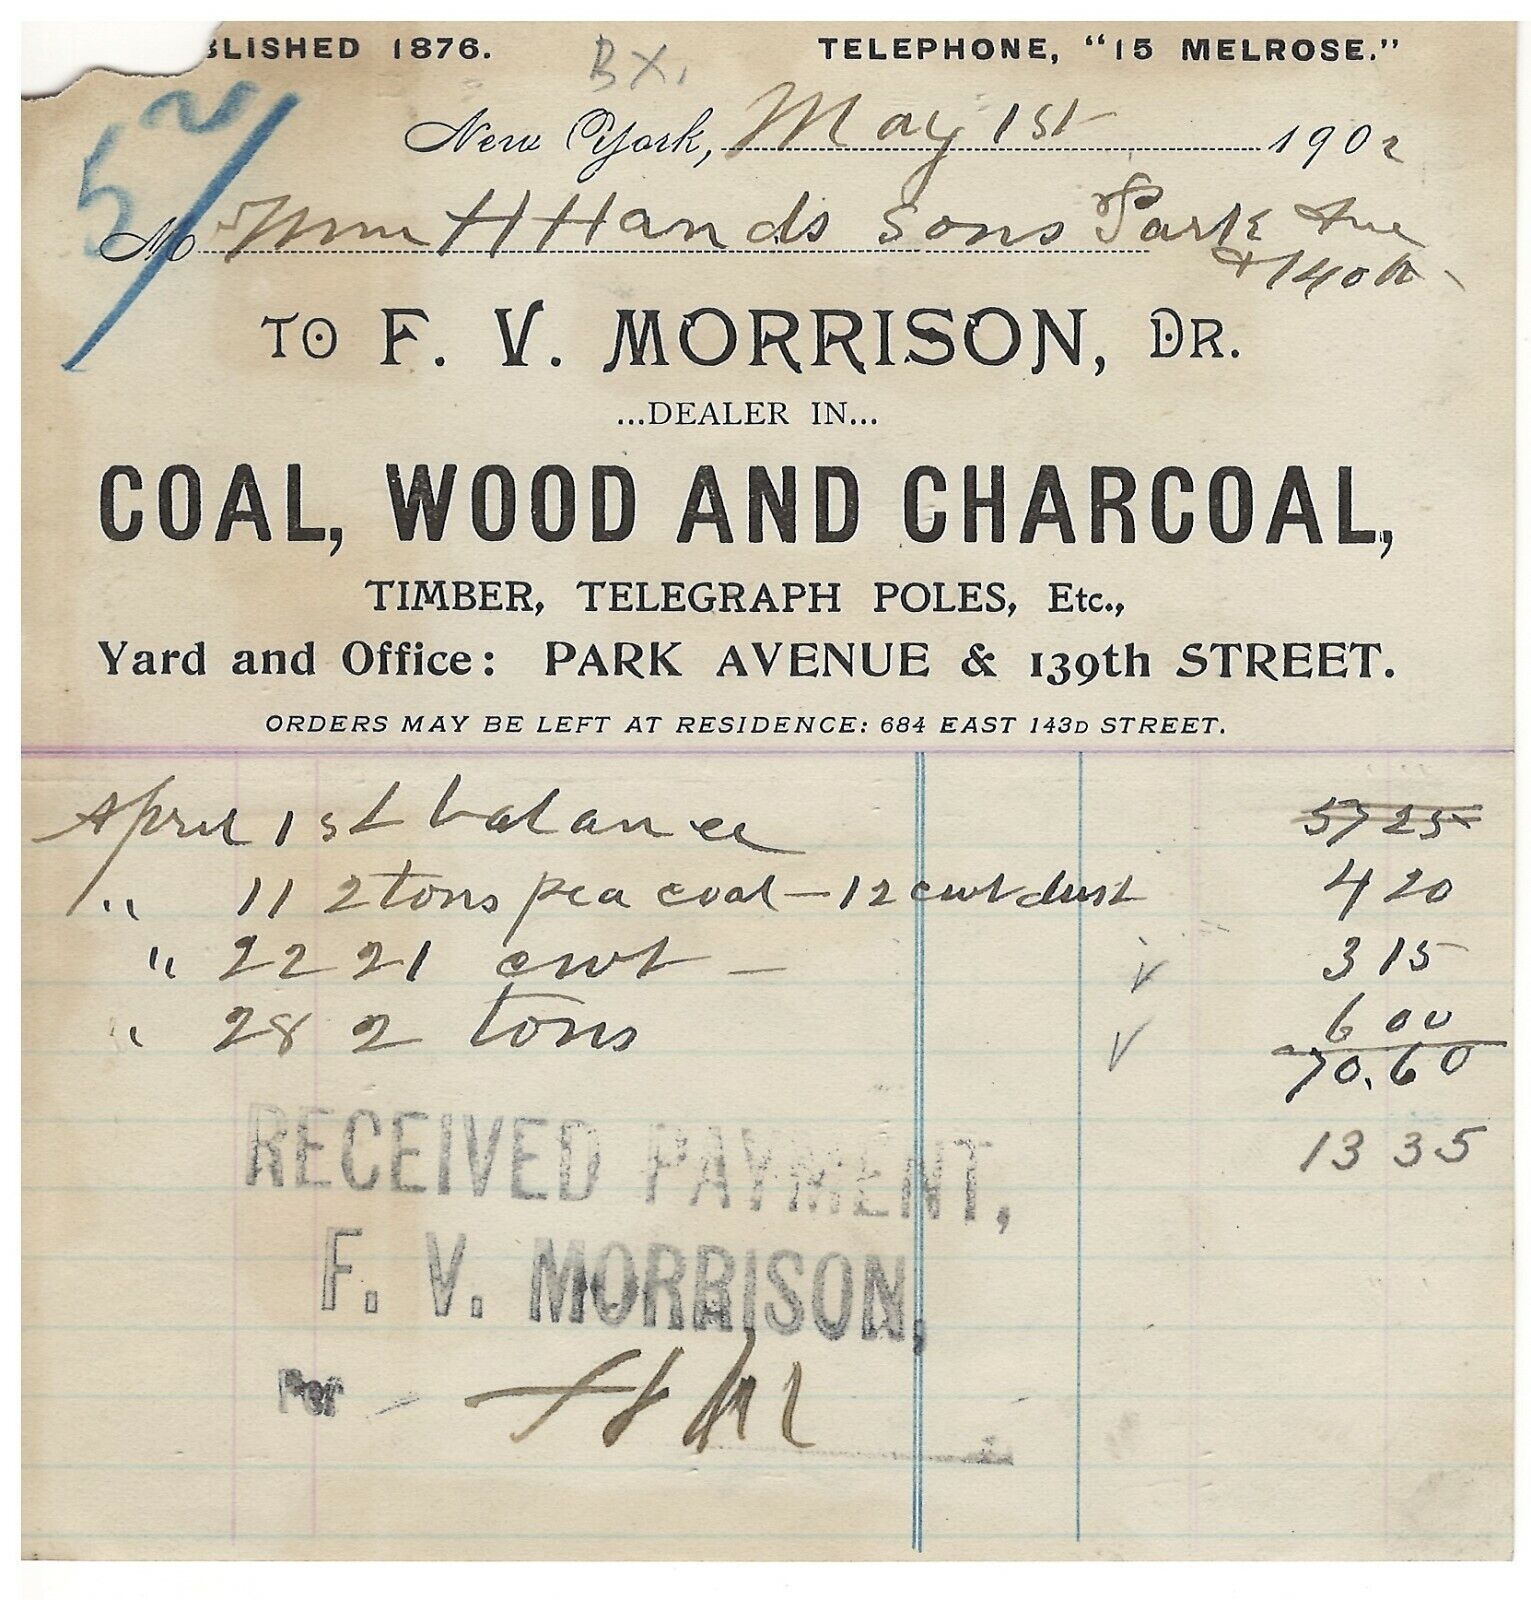 BLISHED 1876.
BX.
TELEPHONE, "15 MELROSE."
52/
New York, May 1st 1902
M Wm H Hands Sons Park Ave
+ 140th
TO F. V. MORRISON, DR.
...DEALER IN...
COAL, WOOD AND CHARCOAL,
TIMBER, TELEGRAPH POLES, Etc.,
Yard and Office: PARK AVENUE & 139th STREET.
ORDERS MAY BE LEFT AT RESIDENCE: 684 EAST 143D STREET.
April 1st balance 57 25
" 11 2 tons pea coal - 12 cwt dust 4 20
" 22 21 cwt - 3 15
" 28 2 tons 6 00
70.60
13 35
RECEIVED PAYMENT,
F. V. MORRISON,
Per